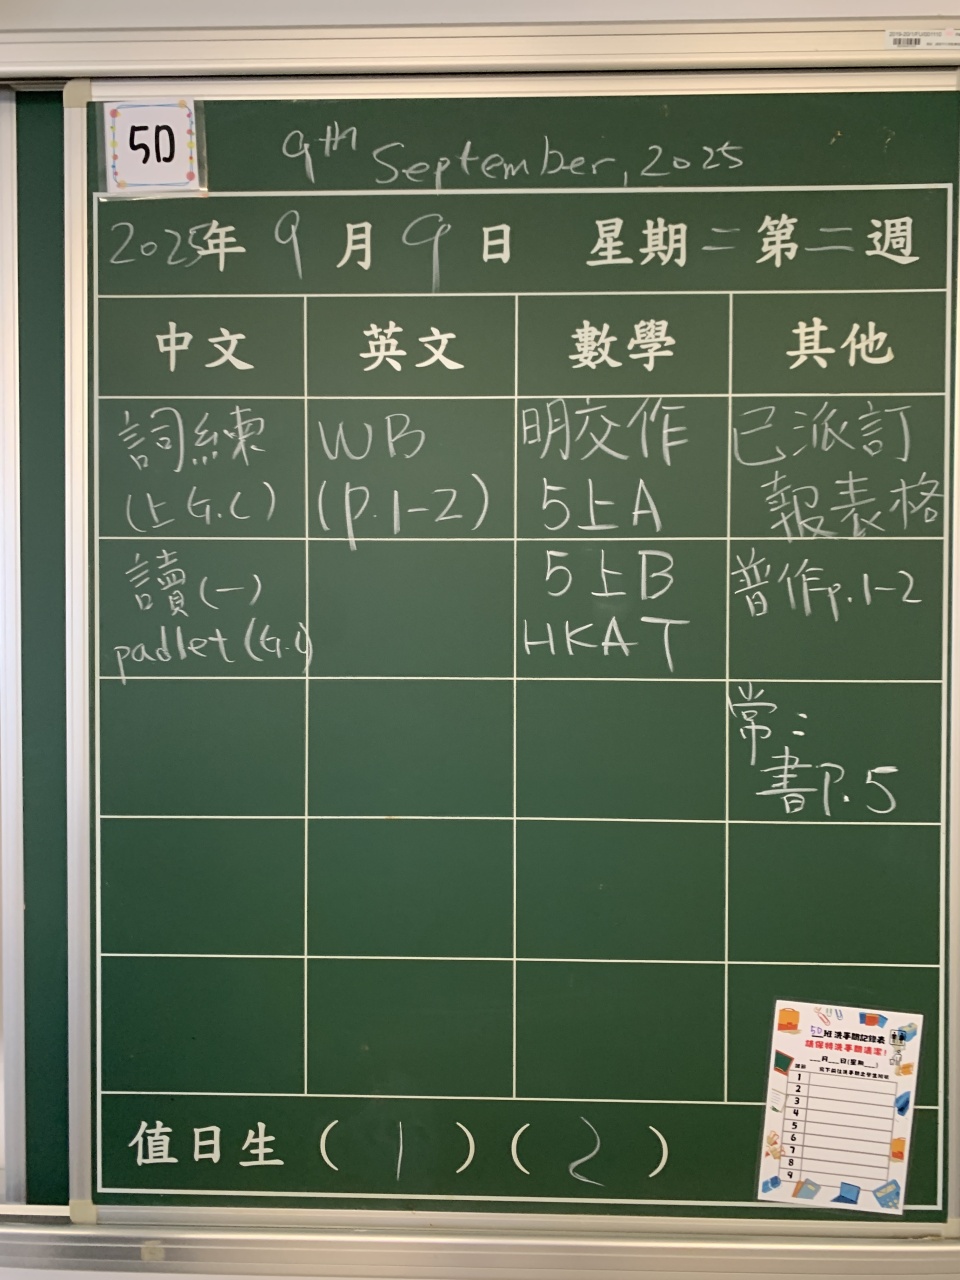 5D
9th September, 2025
2025年 9月 9日 星期二 第二週
中文 英文 數學 其他
詞練
(上 G.C)
WB
(P.1-2)
明交作
5上A
已派訂
報表格
讀(一)
padlet (G.C)
5上B
HKAT
普作p.1-2
常:
書P.5
值日生 ( 1 ) ( 2 )
5D班洗手間記錄表
請保持洗手間清潔!
___月___日(星期___)
1
2
3
4
5
6
7
8
9